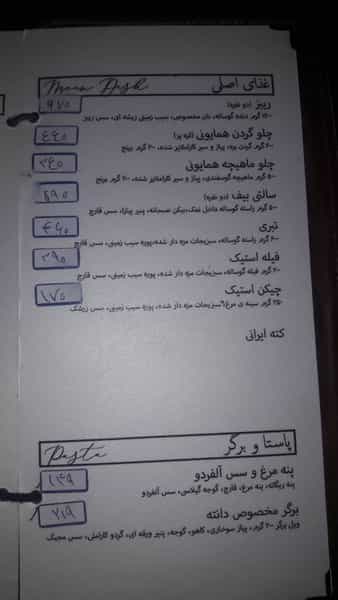 غذای اصلی Main Dish
ریبز (دو نفره) ۹۷۰
۱۲۰۰ گرم دنده گوساله، نان مخصوص، سیب زمینی رشته ای، سس ریبز
چلو گردن همایونی (اره بر) ۴۴۰
۶۰۰ گرم گردن بره، پیاز و سیر کاراملایز شده، ۳۰۰ گرم برنج
چلو ماهیچه همایونی ۳۴۰
۵۰۰ گرم ماهیچه گوسفندی، پیاز و سیر کاراملایز شده، ۳۰۰ گرم برنج
سالتی بیف (دو نفره) ۸۹۰
۵۰۰ گرم راسته گوساله داخل نمک،بیکن صبحانه، پنیر پیتزا، سس قارچ
تبری ۴۴۰
گرم راسته گوساله، سبزیجات مزه دار شده،پوره سیب زمینی، سس قارچ
فیله استیک ۳۹۰
گرم فیله گوساله، سبزیجات مزه دار شده، پوره سیب زمینی، سس قارچ
چیکن استیک ۱۷۰
۲۵۰ گرم سینه ی مرغ، سبزیجات مزه دار شده، پوره سیب زمینی، سس زرشک
کته ایرانی
پاستا و برگر Pasta
پنه مرغ و سس آلفردو ۱۴۹
پنه ریگاته، پنه مرغ، قارچ، گوجه گیلاسی، سس آلفردو
برگر مخصوص دانته ۲۱۹
ویل برگر ۲۰۰ گرم، پیاز سوخاری، کاهو، گوجه، پنیر ورقه ای، گردو کاراملی، سس مجیک